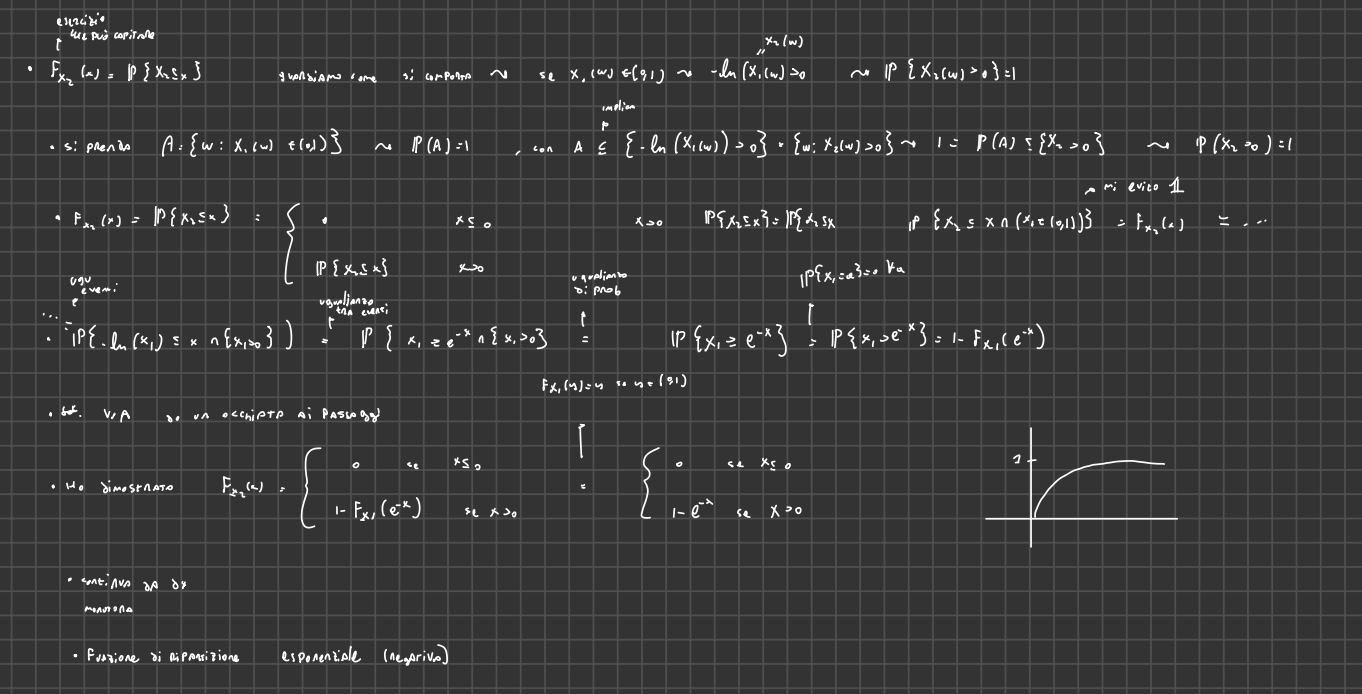 esercizio
che può capitare
• F_{X_2}(x) = ℙ{X_2 ≤ x} guardiamo come si comporta ⇝ se X_1(w) ∈ (0,1) ⇝ -ln(X_1(w)) > 0 ⇝ ℙ{X_2(w) > 0} = 1
" X_2(w)
implica
• si prenda A = {w : X_1(w) ∈ (0,1)} ⇝ ℙ(A) = 1 , con A ⊆ {-ln(X_1(w)) > 0} = {w : X_2(w) > 0} ⇝ 1 = ℙ(A) ≤ {X_2 > 0} ⇝ ℙ(X_2 > 0) = 1
mi evito 𝟙
• F_{X_2}(x) = ℙ{X_2 ≤ x} = { 0 x ≤ 0 x > 0 ℙ{X_2 ≤ x} = ℙ{X_2 ≤ x ℙ{X_2 ≤ x ∩ (X_1 ∈ (0,1))} = F_{X_2}(x) = ...
ℙ{X_2 ≤ x} x > 0
ugu eventi
uguaglianza tra eventi
uguaglianza di prob
ℙ{X_1 = a} = 0 ∀a
... =
• ℙ{-ln(X_1) ≤ x ∩ {X_1 > 0}) = ℙ{ X_1 ≥ e^{-x} ∩ {X_1 > 0} = ℙ{X_1 ≥ e^{-x}} = ℙ{X_1 > e^{-x}} = 1 - F_{X_1}(e^{-x})
F_{X_1}(u) = u se u ∈ (0,1)
• V.A do un occhiata ai passaggi
• Ho dimostrato F_{X_2}(x) = { 0 se x ≤ 0 = { 0 se x ≤ 0
1 - F_{X_1}(e^{-x}) se x > 0 1 - e^{-x} se x > 0
1
• continua da dx
monotona
• Funzione di ripartizione esponenziale (negativa)